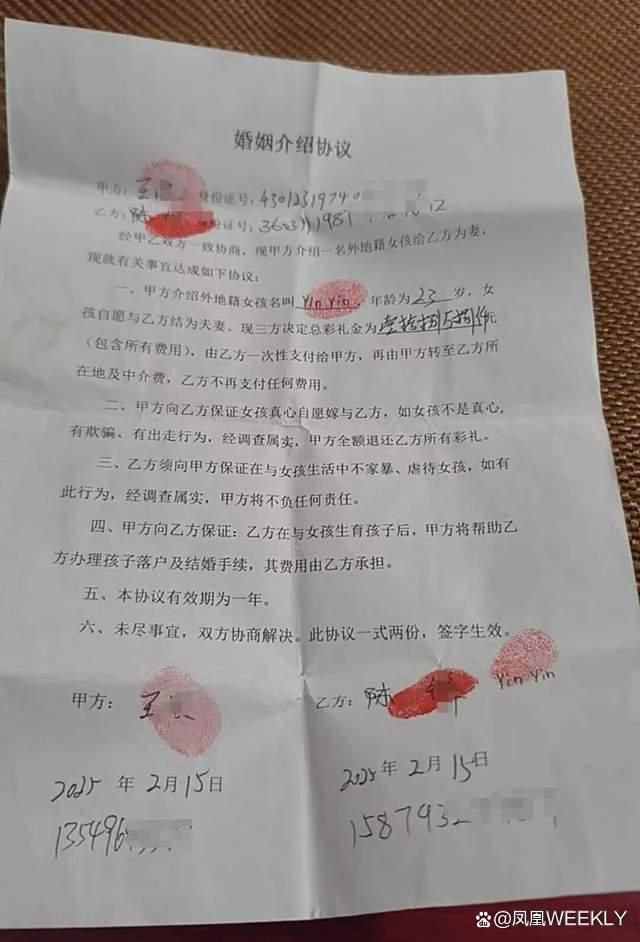 婚姻介绍协议
甲方：王 身份证号：43012319740
乙方：陈 身份证号：360311981
经甲乙双方一致协商，现甲方介绍一名外地籍女孩给乙方为妻，
现就有关事宜达成如下协议：
一、甲方介绍外地籍女孩名叫 Yin Yin，年龄为 23 岁，女
孩自愿与乙方结为夫妻。现三方决定总彩礼金为 元
（包含所有费用），由乙方一次性支付给甲方，再由甲方转至乙方所
在地及中介费，乙方不再支付任何费用。
二、甲方向乙方保证女孩真心自愿嫁与乙方，如女孩不是真心，
有欺骗、有出走行为，经调查属实，甲方全额退还乙方所有彩礼。
三、乙方须向甲方保证在与女孩生活中不家暴、虐待女孩，如有
此行为，经调查属实，甲方将不负任何责任。
四、甲方向乙方保证：乙方在与女孩生育孩子后，甲方将帮助乙
方办理孩子落户及结婚手续，其费用由乙方承担。
五、本协议有效期为一年。
六、未尽事宜，双方协商解决。此协议一式两份，签字生效。
甲方：王 乙方：陈 Yin Yin
2025 年 2月15日 2025 年 2月15日
135496 1587932
@凤凰WEEKLY